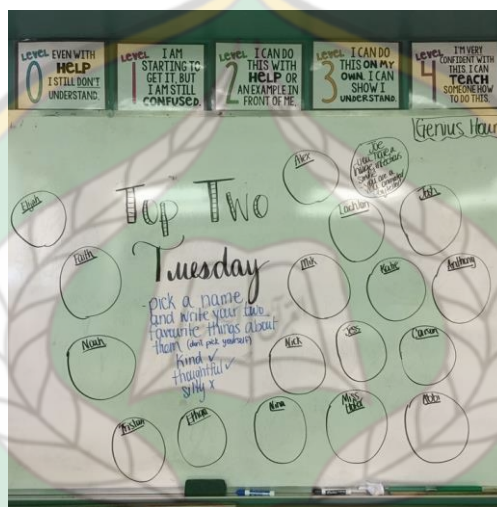 LEVEL 0
EVEN WITH
HELP
I STILL DON'T
UNDERSTAND.
LEVEL 1
I AM
STARTING TO
GET IT, BUT
I AM STILL
CONFUSED.
LEVEL 2
I CAN DO
THIS WITH
HELP OR
AN EXAMPLE IN
FRONT OF ME.
LEVEL 3
I CAN DO
THIS ON MY
OWN. I CAN
SHOW I
UNDERSTAND.
LEVEL 4
I'M VERY
CONFIDENT WITH
THIS. I CAN
TEACH
SOMEONE HOW
TO DO THIS.
Genius Hour
Top Two
Tuesday
pick a name
and write your two
favourite things about
them (don't pick yourself)
kind ✓
thoughtful ✓
silly x
Elijah
Alex
Joe
you have a
huge infectious
smile
Lachlan
Josh
Faith
Mik
Katie
Anthony
Noah
Nick
Jess
Tristan
Ethan
Nina
Miss